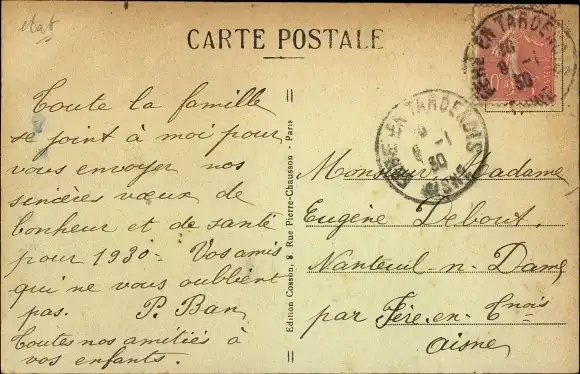 etat
CARTE POSTALE
Toute la famille
se joint à moi pour
vous envoyer nos
sincères vœux de
bonheur et de santé
pour 1930 - Vos amis
qui ne vous oublient
pas. P. Ban
Toutes nos amitiés à
vos enfants.
Edition Cosson, 8, Rue Pierre-Chausson - Paris
FÈRE EN TARDENOIS
-1
30
AISNE
EN TARDEN
-1
30
Monsieur Madame
Eugène Debout,
Nanteuil-n-Dame
par Fère-en-Tnois
Aisne